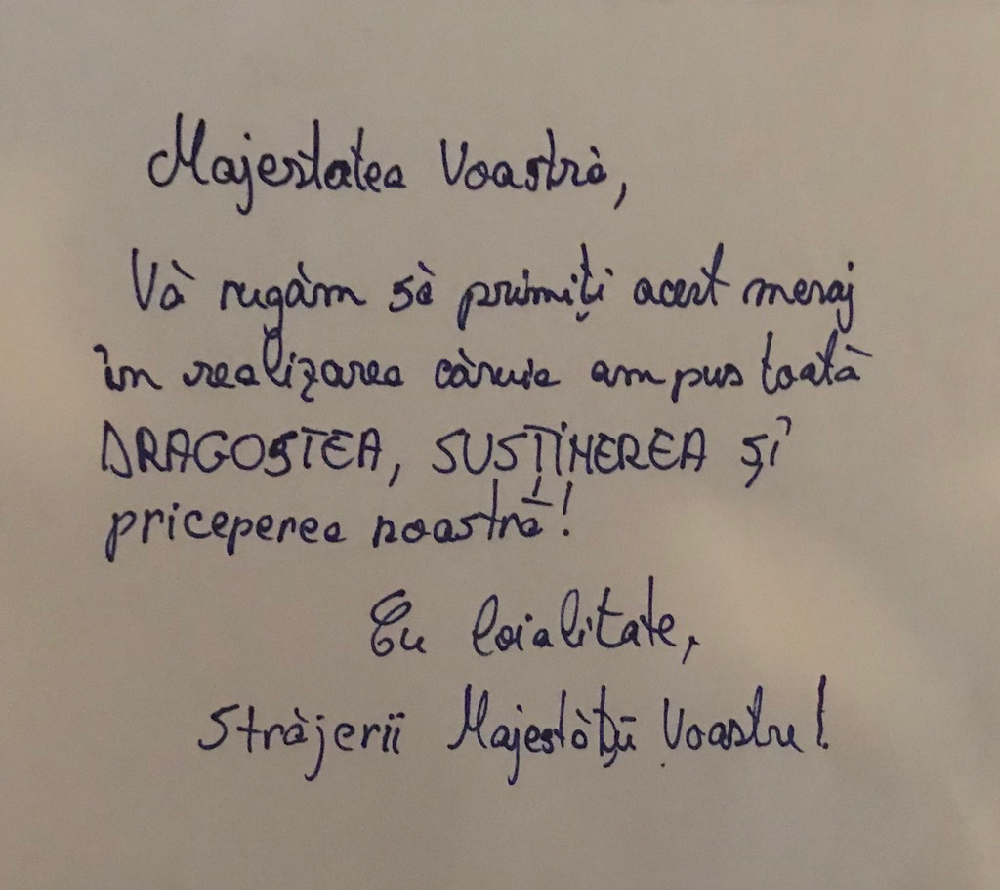 Majestatea Voastră,
Vă rugăm să primiți acest mesaj
în realizarea căruia am pus toată
DRAGOSTEA, SUSȚINEREA ȘI
priceperea noastră!
Cu loialitate,
Străjerii Majestății Voastre!